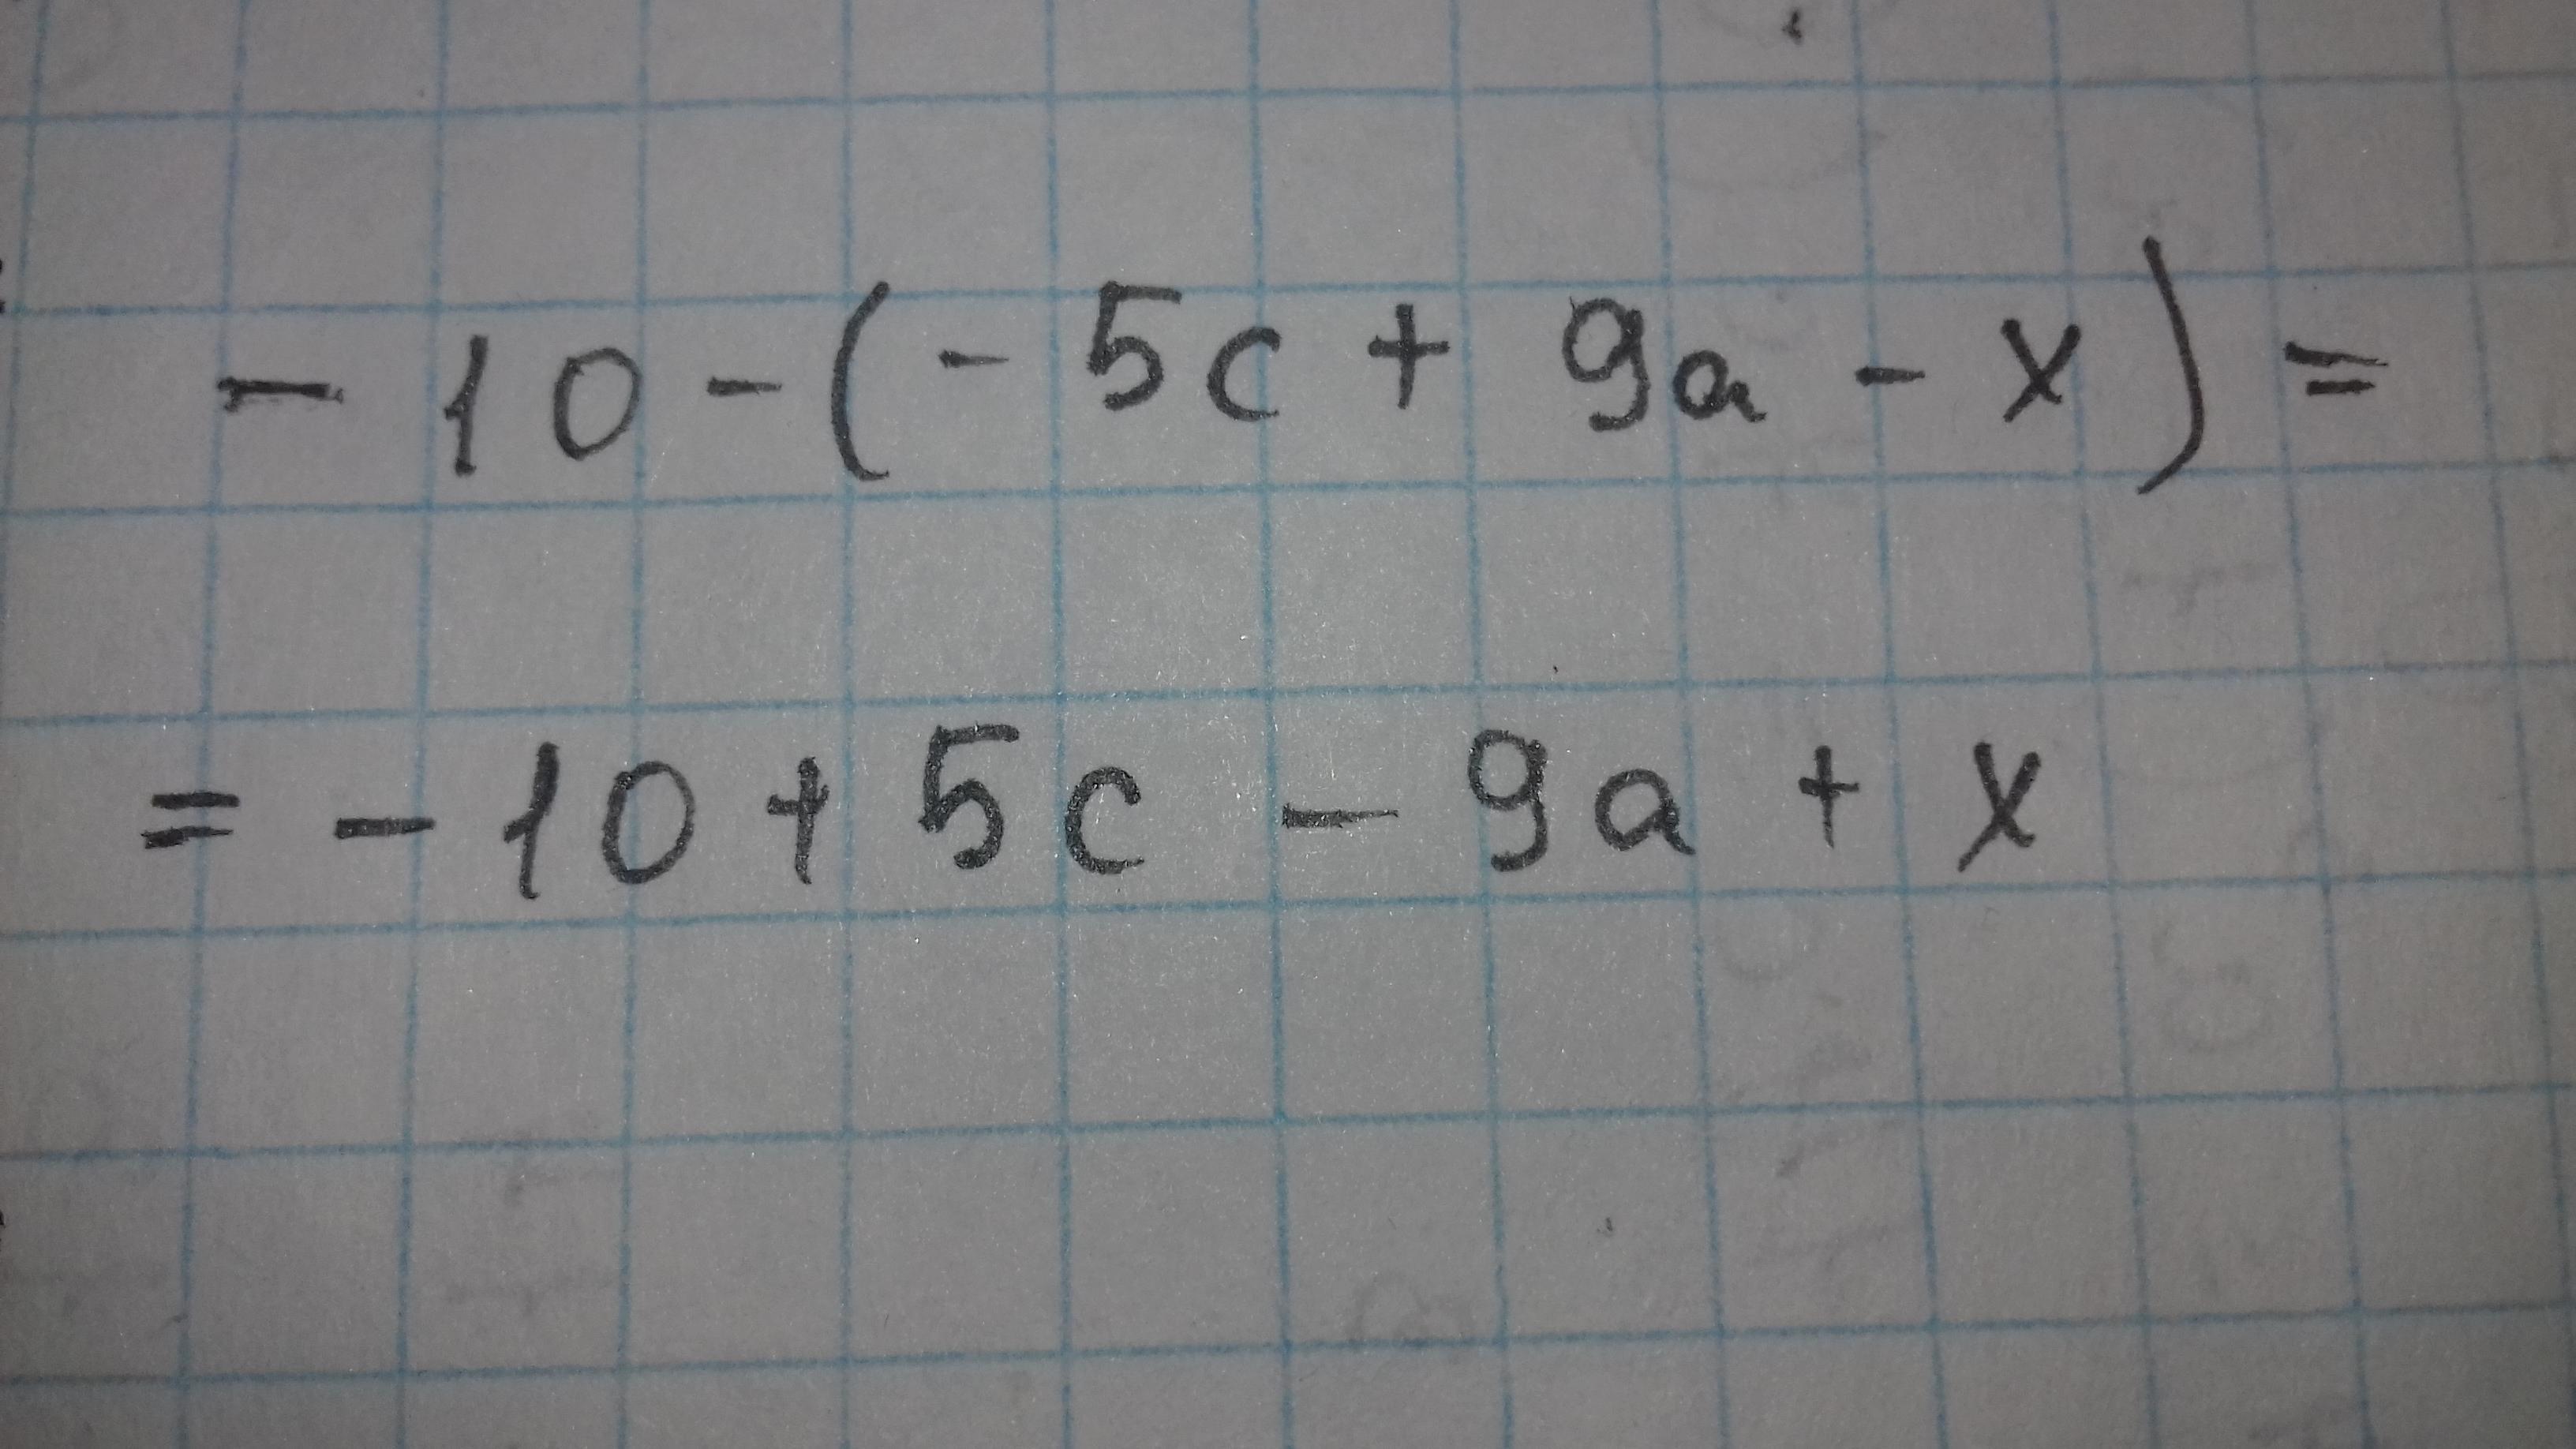 - 10 - (- 5c + 9a - x) =
= - 10 + 5c - 9a + x